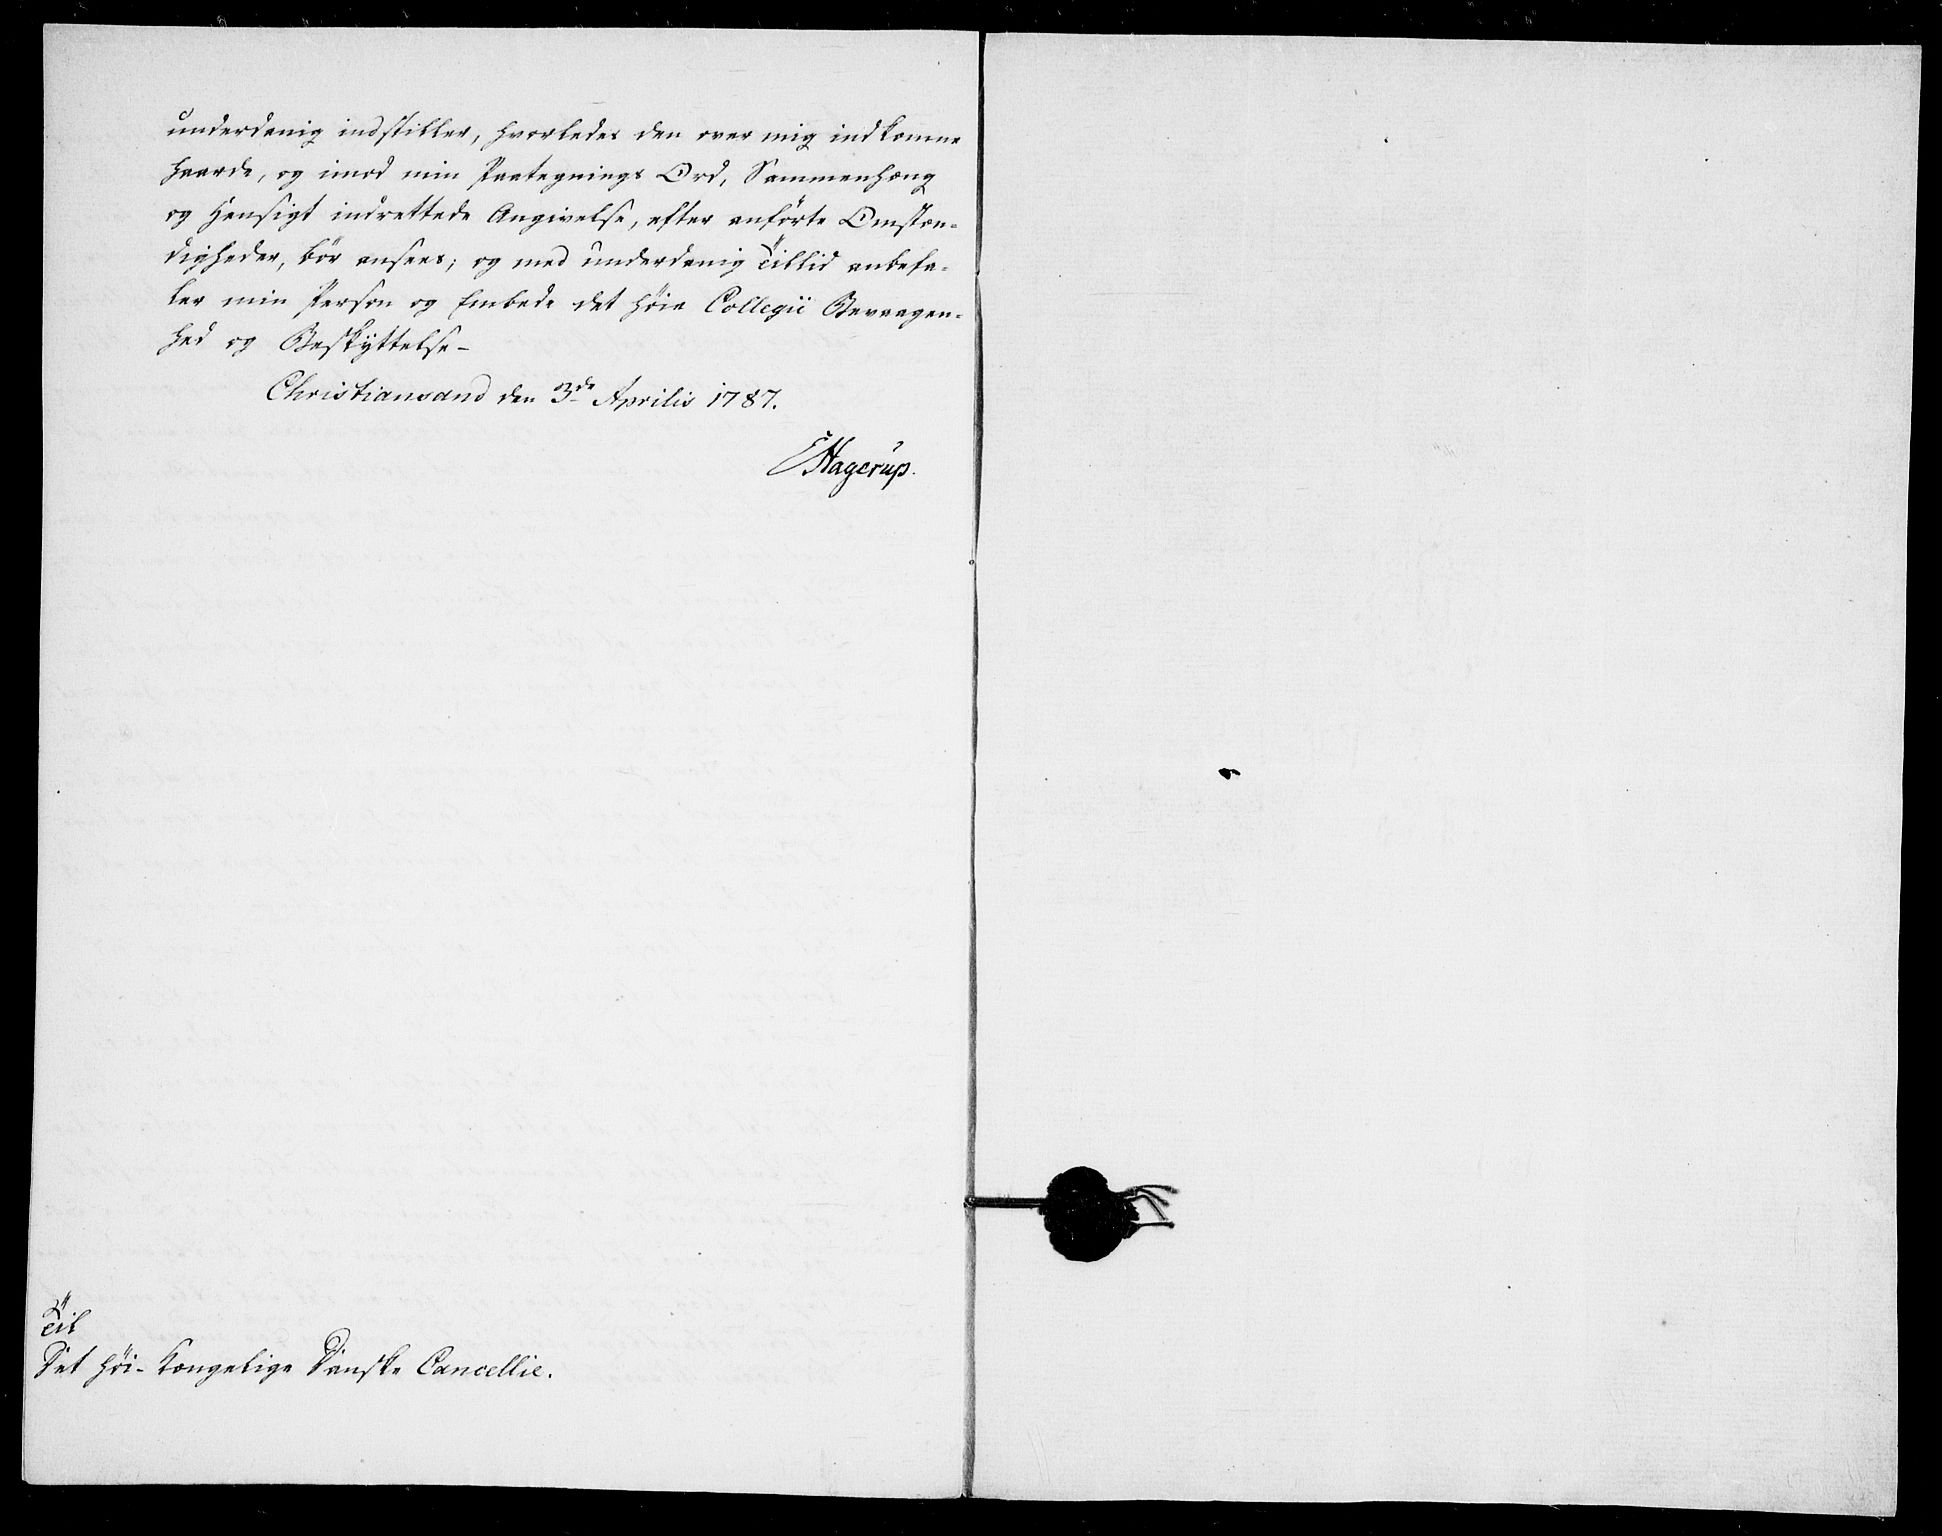 underdanig indstiller, hvorledes den over mig indkomne
haarde, og imod min Paategnings Ord, Sammenhæng
og Hensigt indrettede Angivelse, efter anförte Omstæn-
digheder, bör ansees; og med underdanig Tillid anbefa-
ler min Person og Embede det höie Collegii Bevaagen-
hed og Beskyttelse-
Christiansand den 3de Aprilis 1787.
E Hagerup.
Til
Det höi-Kongelige Danske Cancellie.